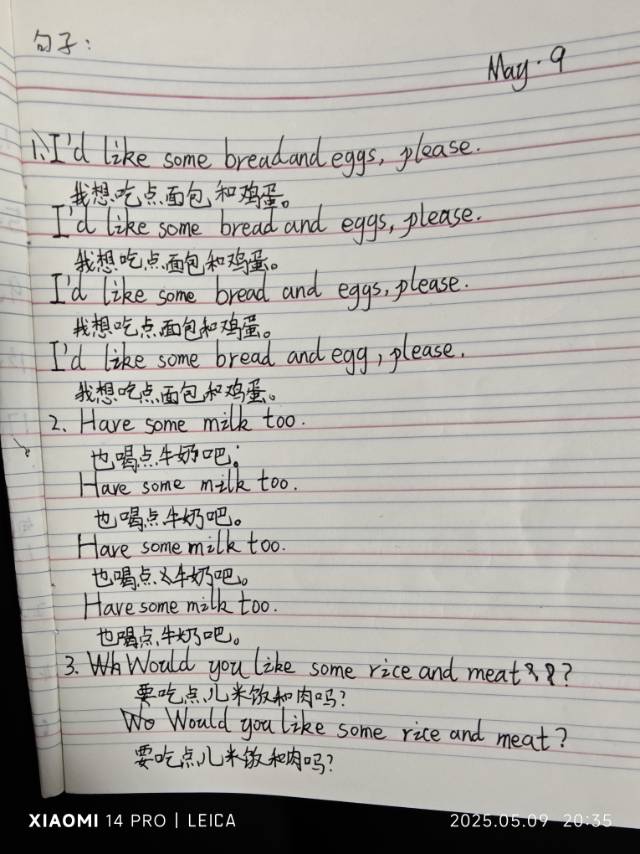 句子:
May.9
1、I'd like some bread and eggs, please.
我想吃点面包和鸡蛋。
I'd like some bread and eggs, please.
我想吃点面包和鸡蛋。
I'd like some bread and eggs, please.
我想吃点面包和鸡蛋。
I'd like some bread and egg, please.
我想吃点面包和鸡蛋。
2. Have some milk too.
也喝点牛奶吧。
Have some milk too.
也喝点牛奶吧。
Have some milk too.
也喝点牛奶吧。
Have some milk too.
也喝点牛奶吧。
3. Would you like some rice and meat?
要吃点儿米饭和肉吗?
Would you like some rice and meat?
要吃点儿米饭和肉吗?
XIAOMI 14 PRO | LEICA
2025.05.09 20:35